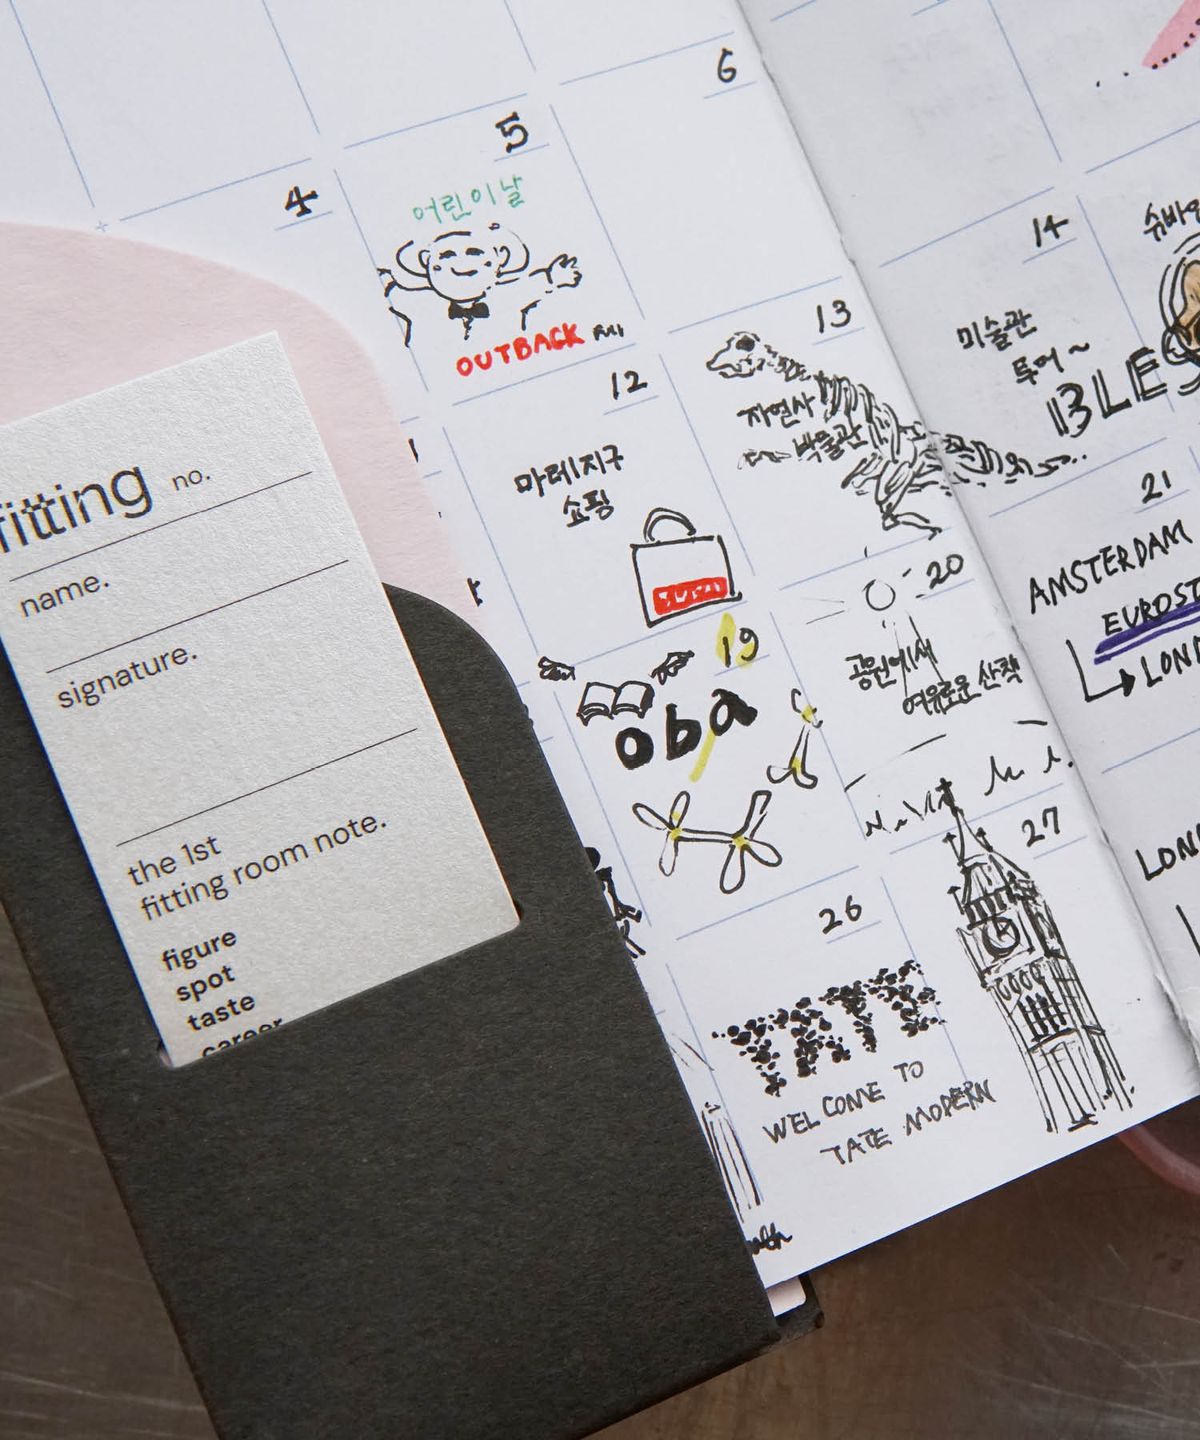 fitting no.
name.
signature.
the 1st
fitting room note.
figure
spot
taste
career
4
5
어린이날
OUTBACK
6
12
마레지구
쇼핑
13
자연사
박물관
14
미술관
투어~
BLES
19
oba
20
공원에서
여유로운 산책
21
AMSTERDAM
EUROST
LOND
26
TATE
WELCOME TO
TATE MODERN
27
LON